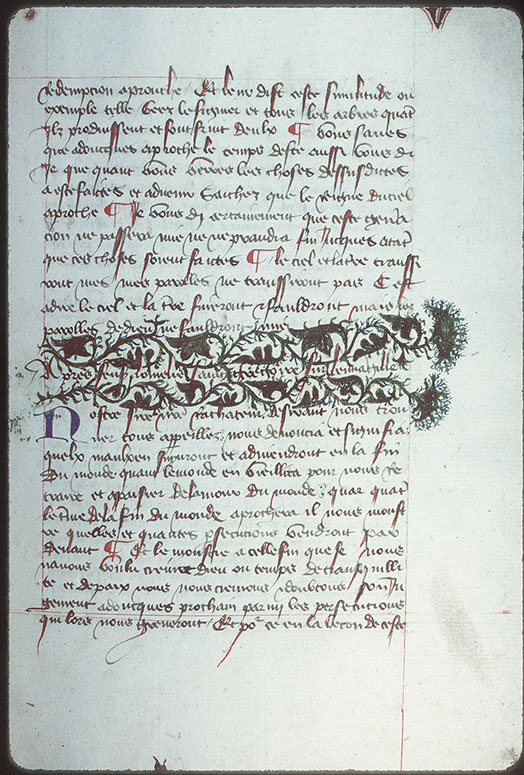 redemption aprouche / Et leur dist ceste similitude ou
exemple telle Veez le figuier et tous les arbres quāt
ilz produissent et font fruit deulx ¶ Vous saves
que adoncques aproche le temps deste aussi vous di
Je que quant vous verres les choses dessusdittes
estre faittes et advenir Saichez que le Regne du ciel
aproche ¶ Je vous di certainement que ceste genera
cion ne passera mie ne ne prandra fin Jucques atāt
que ces choses soient faictes ¶ le ciel et la t̄re transi
ront mes mes parolles ne transiront pas C est
adire le ciel et la t̄re fineront & fauldront mais les
parolles de dieu ne fauldront mie
Apres
Nostre
vier tous appareillez nous denonca et signifia
quelx maulx en suiuront et aduendront en la fin
Du monde quant le monde en vieillira pour nous Re
traire et apaisier de lamour du monde / quar quāt
le t̄me de la fin du monde aprochera il nous monst
re quelles et quātites p̄secutions vendront par
deuant ¶ Et le monstre a celle fin que se nous
nauons voulu cremir dieu ou temps de transquilli
te et de paix nous nous cremons et doubtons son Ju
gement adoncques prochain parmi les persecutions
qui lors nous greueront / Et poͬ ce en la lecon de ceste